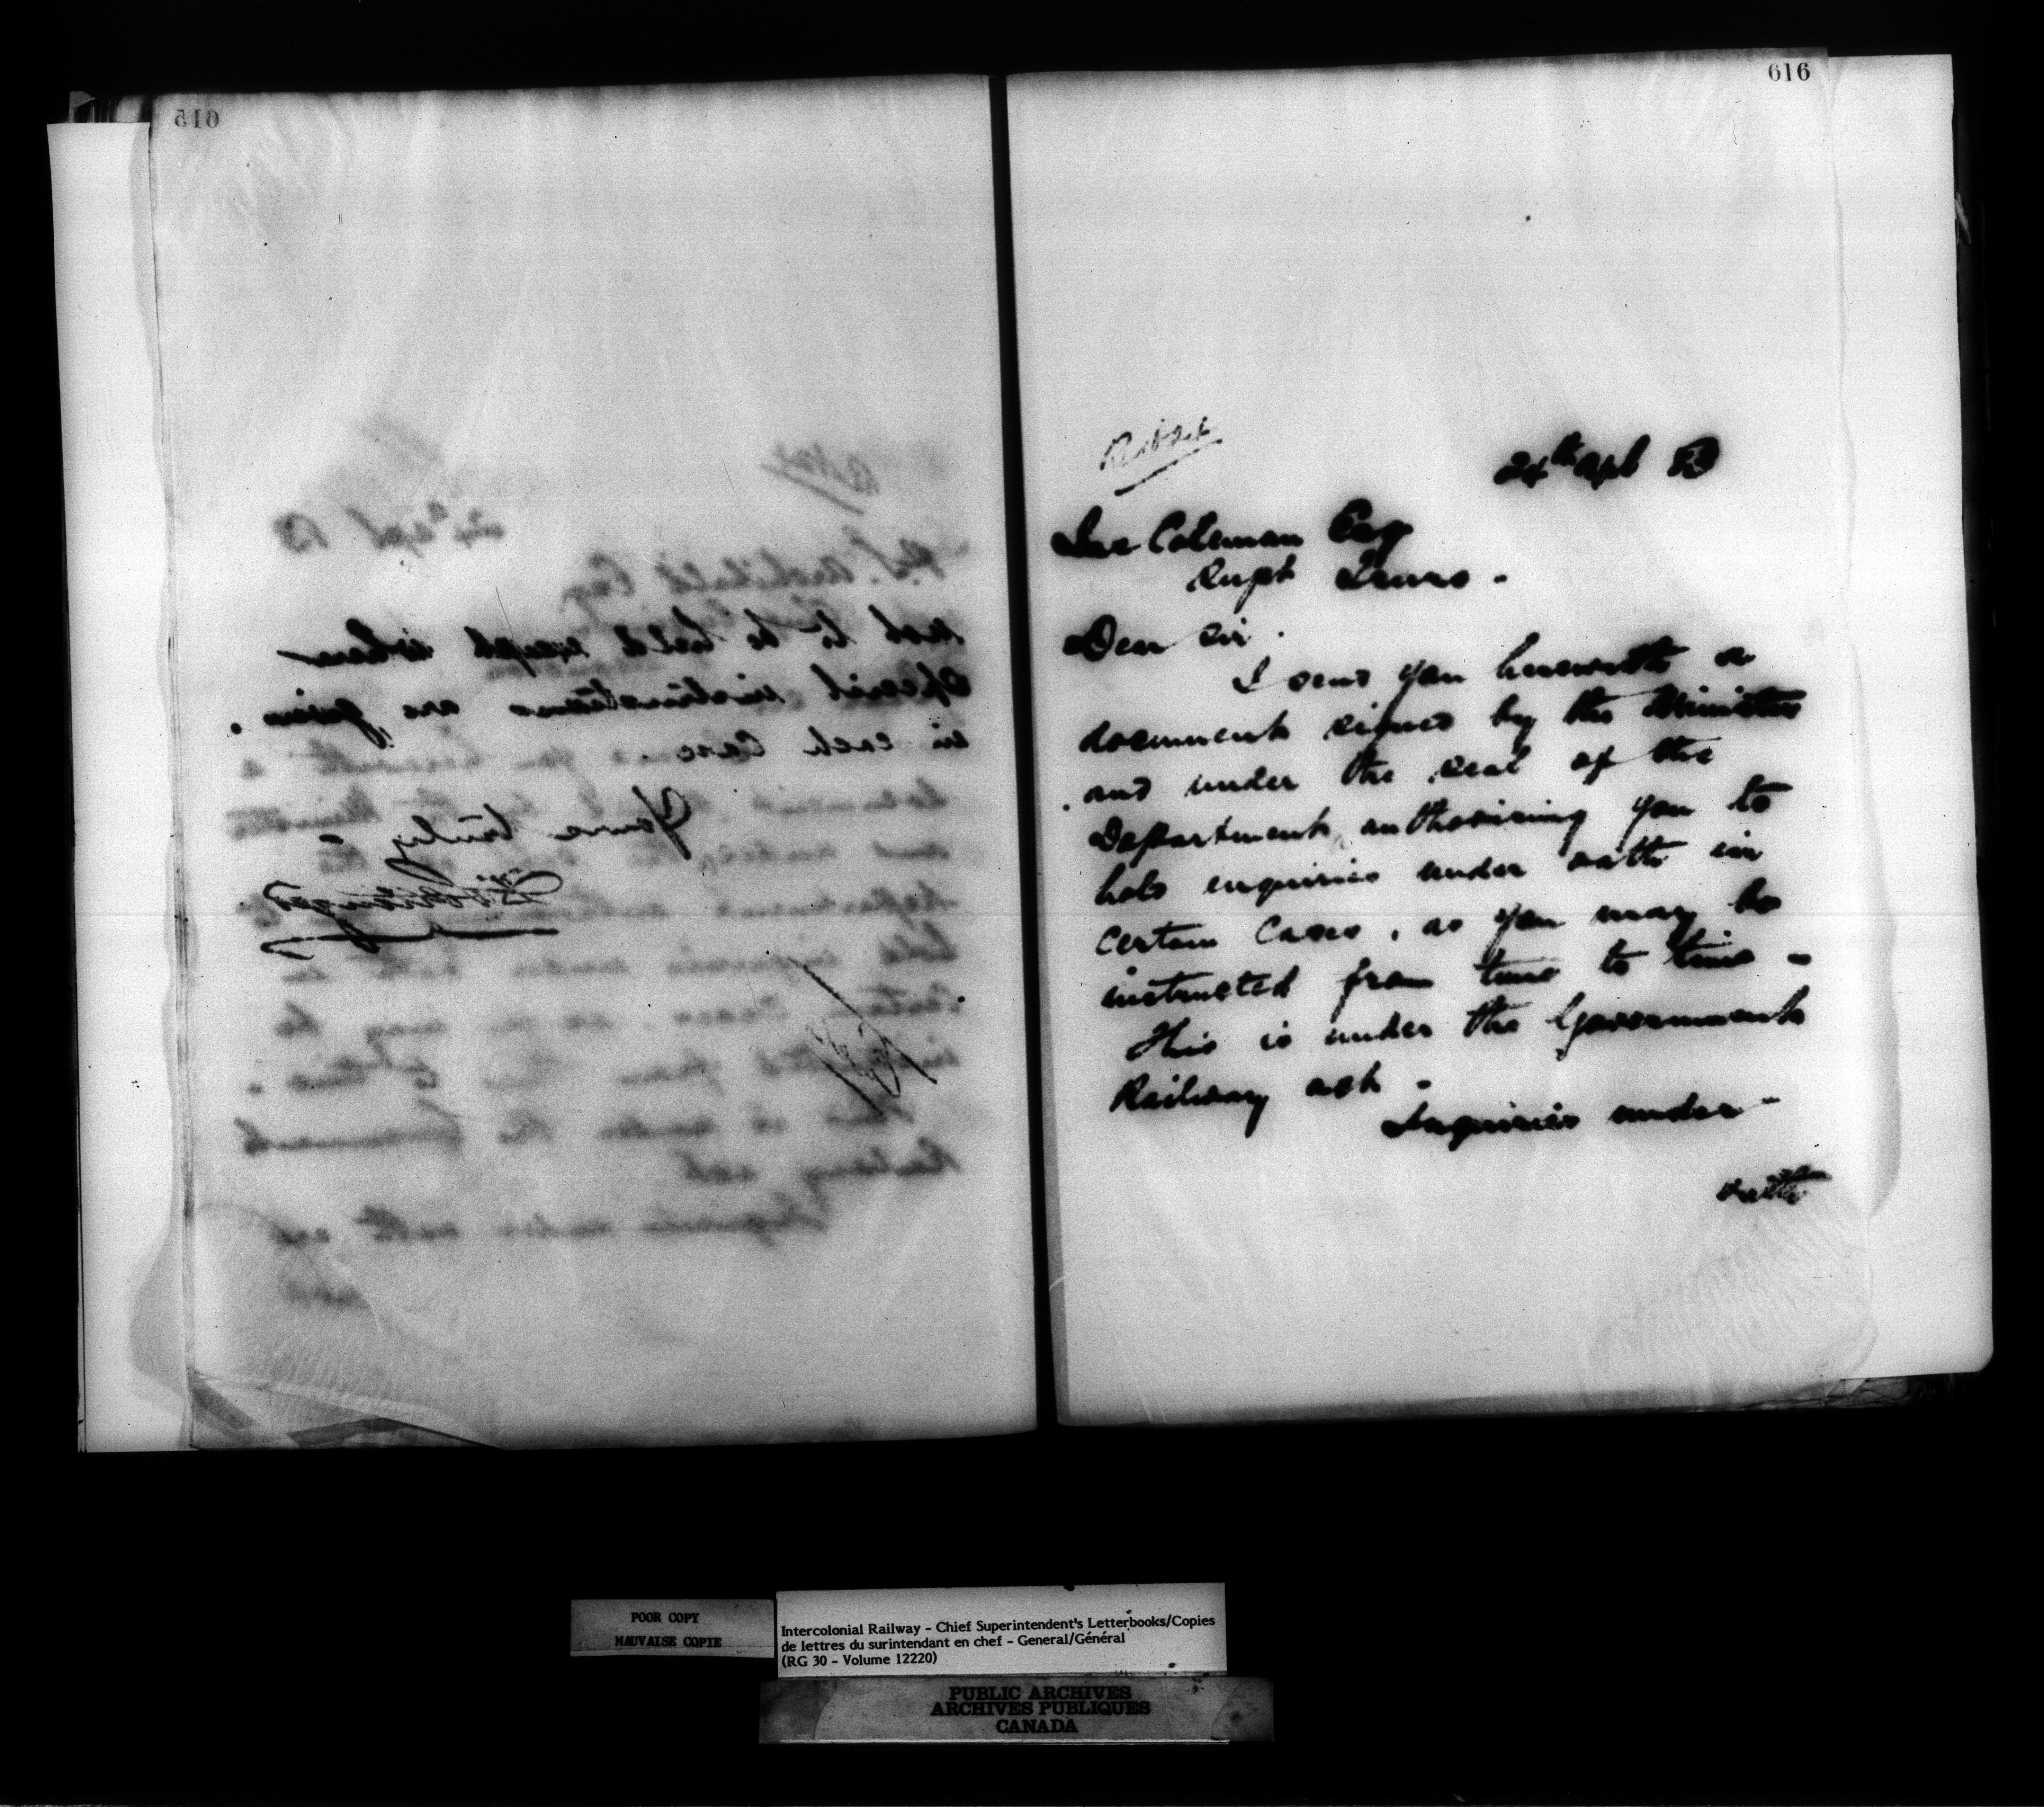 615
24th Apl 83
P.S. Archibald Esq
not to be held except where
Special instructions are given
in each Case.
Yours truly
616
24th Apl 83
Jno Coleman Esq
Supt Truro.
Dear Sir.
I send you herewith a
document signed by the Minister
and under the Seal of the
Department, authorising you to
hold enquiries under oath in
certain Cases, as you may be
instructed from time to time -
This is under the Government
Railway act.
Inquiries under
oath
POOR COPY
MAUVAISE COPIE
Intercolonial Railway - Chief Superintendent's Letterbooks/Copies
de lettres du surintendant en chef - General/Général
(RG 30 - Volume 12220)
PUBLIC ARCHIVES
ARCHIVES PUBLIQUES
CANADA